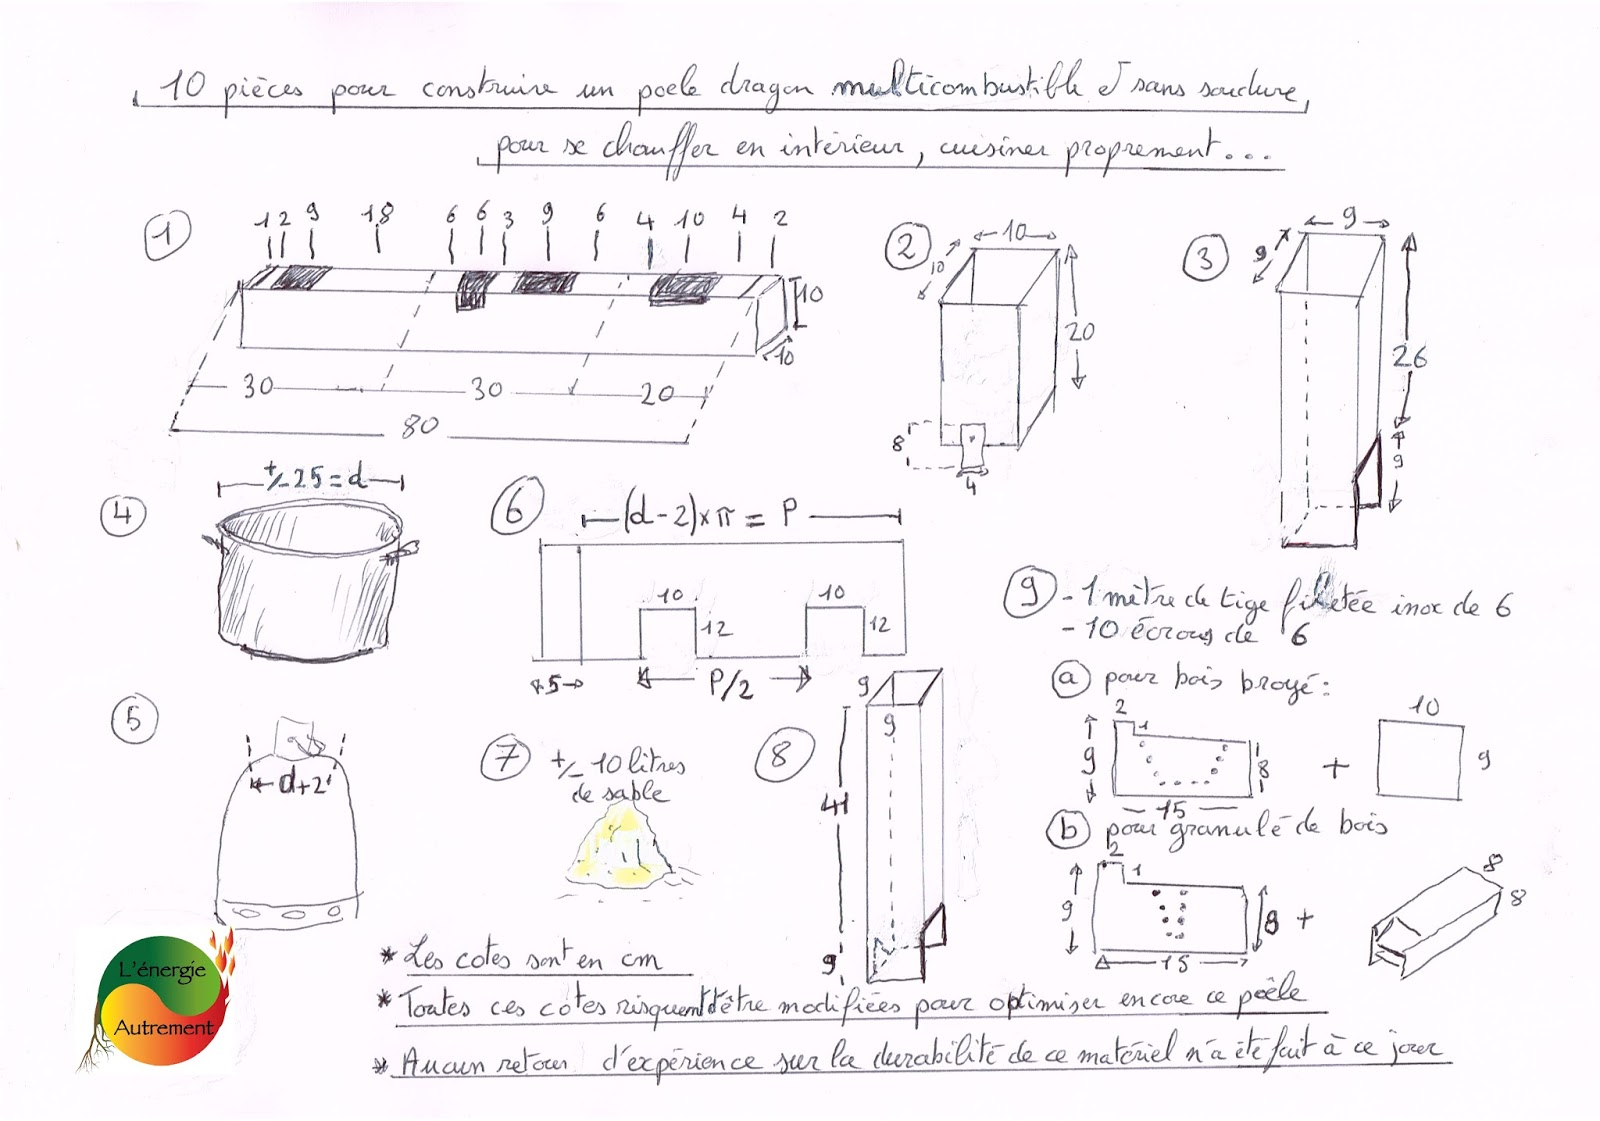 10 pièces pour construire un poele dragon multicombustible et sans soudure,
pour se chauffer en intérieur, cuisiner proprement...
1
1 2 9 18 6 6 3 9 6 4 10 4 2
10
10
30 30 20
80
2
10
10
20
8
4
3
9
9
26
9
4
+/- 25 = d
5
d+2
6
(d-2)×π = P
10 10
12 12
5 P/2
7
+/- 10 litres
de sable
8
9
9
41
9
9 - 1 mètre de tige filetée inox de 6
- 10 écrous de 6
a pour bois broyé:
2 1
9 8
15
+
10
9
b pour granulé de bois
2 1
9 8
15
+
8
8
* Les cotes sont en cm
* Toutes ces cotes risquent d'être modifiées pour optimiser encore ce poêle
* Aucun retour d'expérience sur la durabilité de ce matériel n'a été fait à ce jour
L'énergie
Autrement